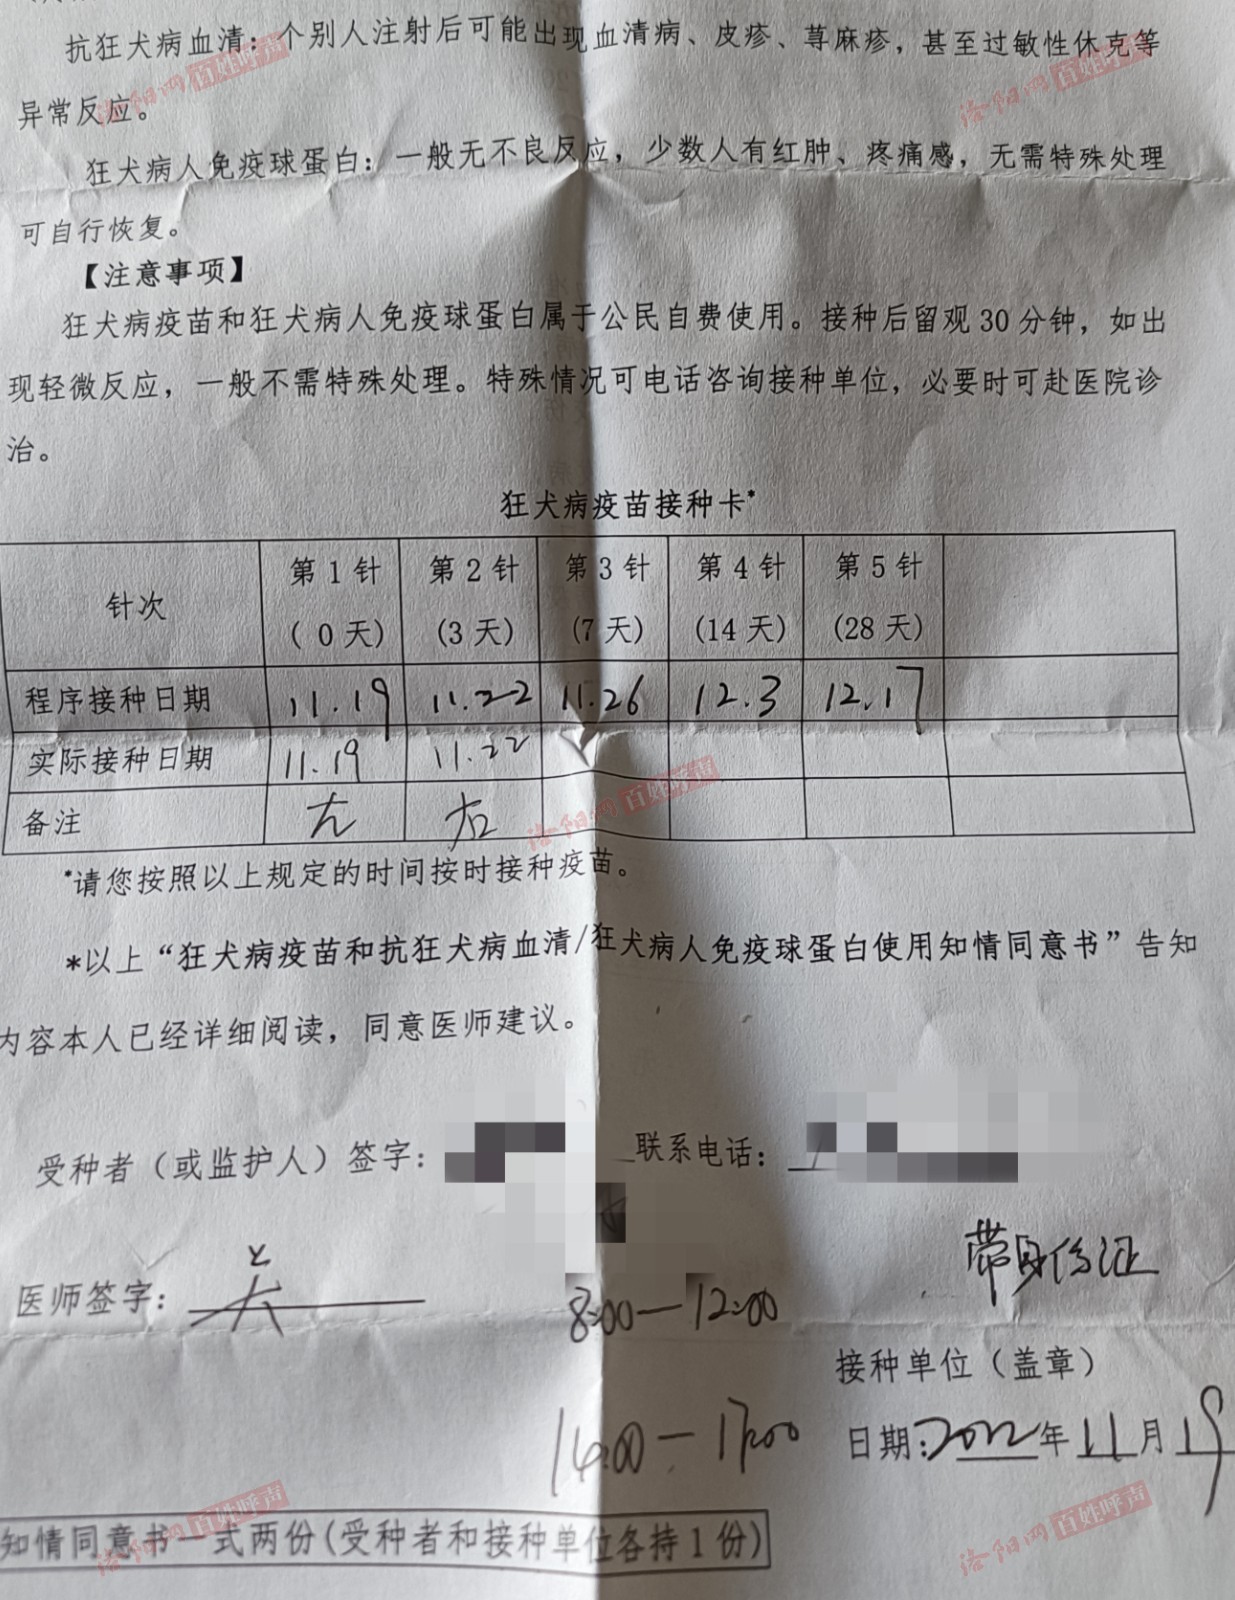 抗狂犬病血清：个别人注射后可能出现血清病、皮疹、荨麻疹，甚至过敏性休克等
异常反应。
狂犬病人免疫球蛋白：一般无不良反应，少数人有红肿、疼痛感，无需特殊处理
可自行恢复。
【注意事项】
狂犬病疫苗和狂犬病人免疫球蛋白属于公民自费使用。接种后留观30分钟，如出
现轻微反应，一般不需特殊处理。特殊情况可电话咨询接种单位，必要时可赴医院诊
治。
狂犬病疫苗接种卡*
针次 第1针 第2针 第3针 第4针 第5针
(0天) (3天) (7天) (14天) (28天)
程序接种日期 11.19 11.22 11.26 12.3 12.17
实际接种日期 11.19 11.22
备注 左 右
*请您按照以上规定的时间按时接种疫苗。
*以上“狂犬病疫苗和抗狂犬病血清/狂犬病人免疫球蛋白使用知情同意书”告知
内容本人已经详细阅读，同意医师建议。
受种者（或监护人）签字： 联系电话：
带身份证
医师签字：
8:00—12:00
接种单位（盖章）
14:00—17:00
日期：2022年11月19
知情同意书一式两份(受种者和接种单位各持1份)
洛阳网 百姓呼声
洛阳网 百姓呼声
洛阳网 百姓呼声
洛阳网 百姓呼声
洛阳网 百姓呼声